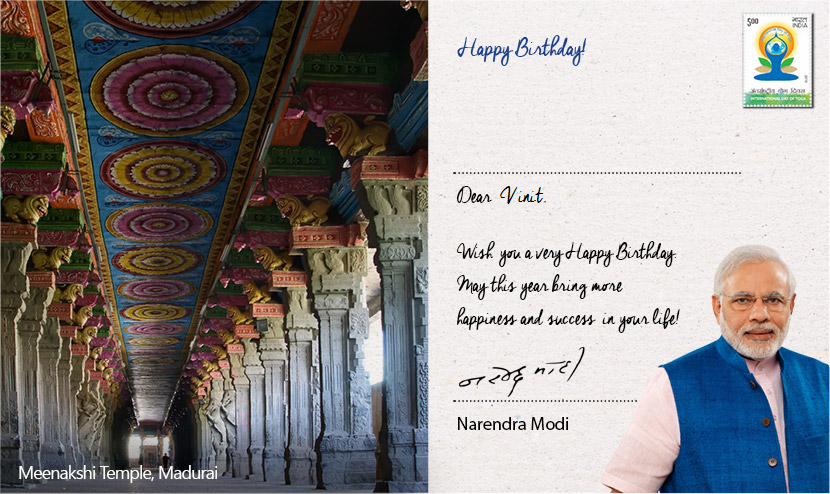 Meenakshi Temple, Madurai
Happy Birthday!
5.00 भारत
INDIA
अंतर्राष्ट्रीय योग दिवस
INTERNATIONAL DAY OF YOGA
Dear Vinit.
Wish you a very Happy Birthday.
May this year bring more
happiness and success in your life!
नरेन्द्र मोदी
Narendra Modi